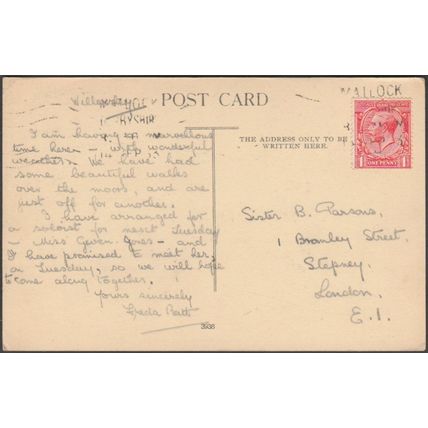 MATLOCK
POST CARD
THE ADDRESS ONLY TO BE
WRITTEN HERE.
ONE PENNY
I am having a marvellous
time here - with wonderful
weather. We have had
some beautiful walks
over the moors, and are
just off for another.
I have arranged for
a soloist for next Tuesday
- Miss Gwen Jones - and
I have promised to meet her
on Tuesday, so we will hope
to come along together.
Yours sincerely
Freda
Sister B. Parsons,
1 Bromley Street,
Stepney,
London,
E.1.
3938